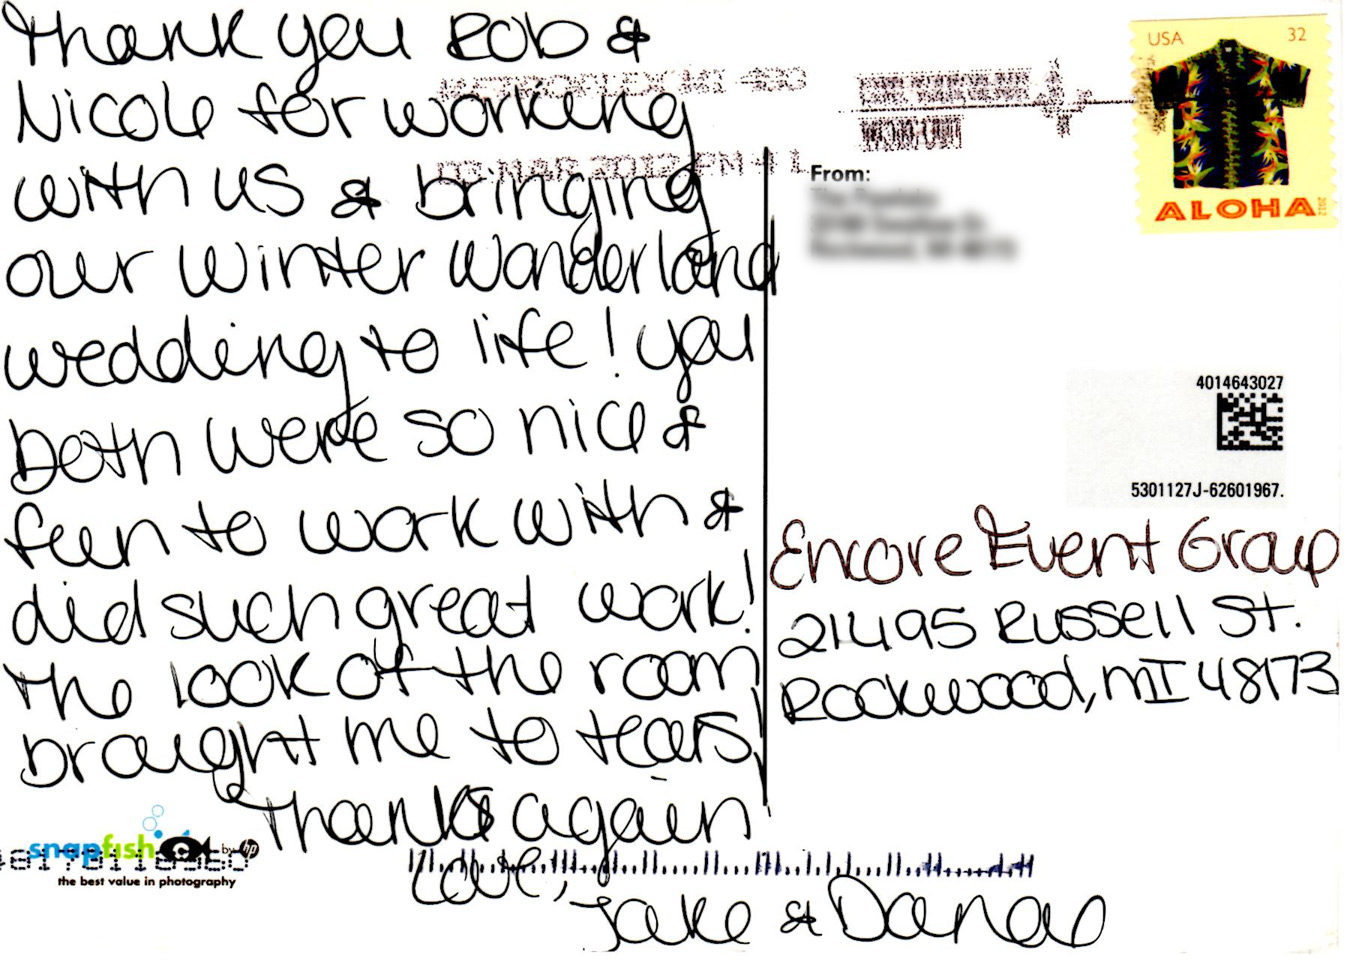 Thank you Rob &
Nicole for working
with us & bringing
our Winter Wonderland
wedding to life! you
both were so nice &
fun to work with &
did such great work!
The look of the room
brought me to tears!
Thanks again
Love,
Jake & Danae
METROPLEX MI 480
03 MAR 2012 PM 4 L
USA 32
ALOHA
2012
From:
4014643027
5301127J-62601967.
Encore Event Group
21495 Russell St.
Rockwood, MI 48173
snapfish by hp
the best value in photography